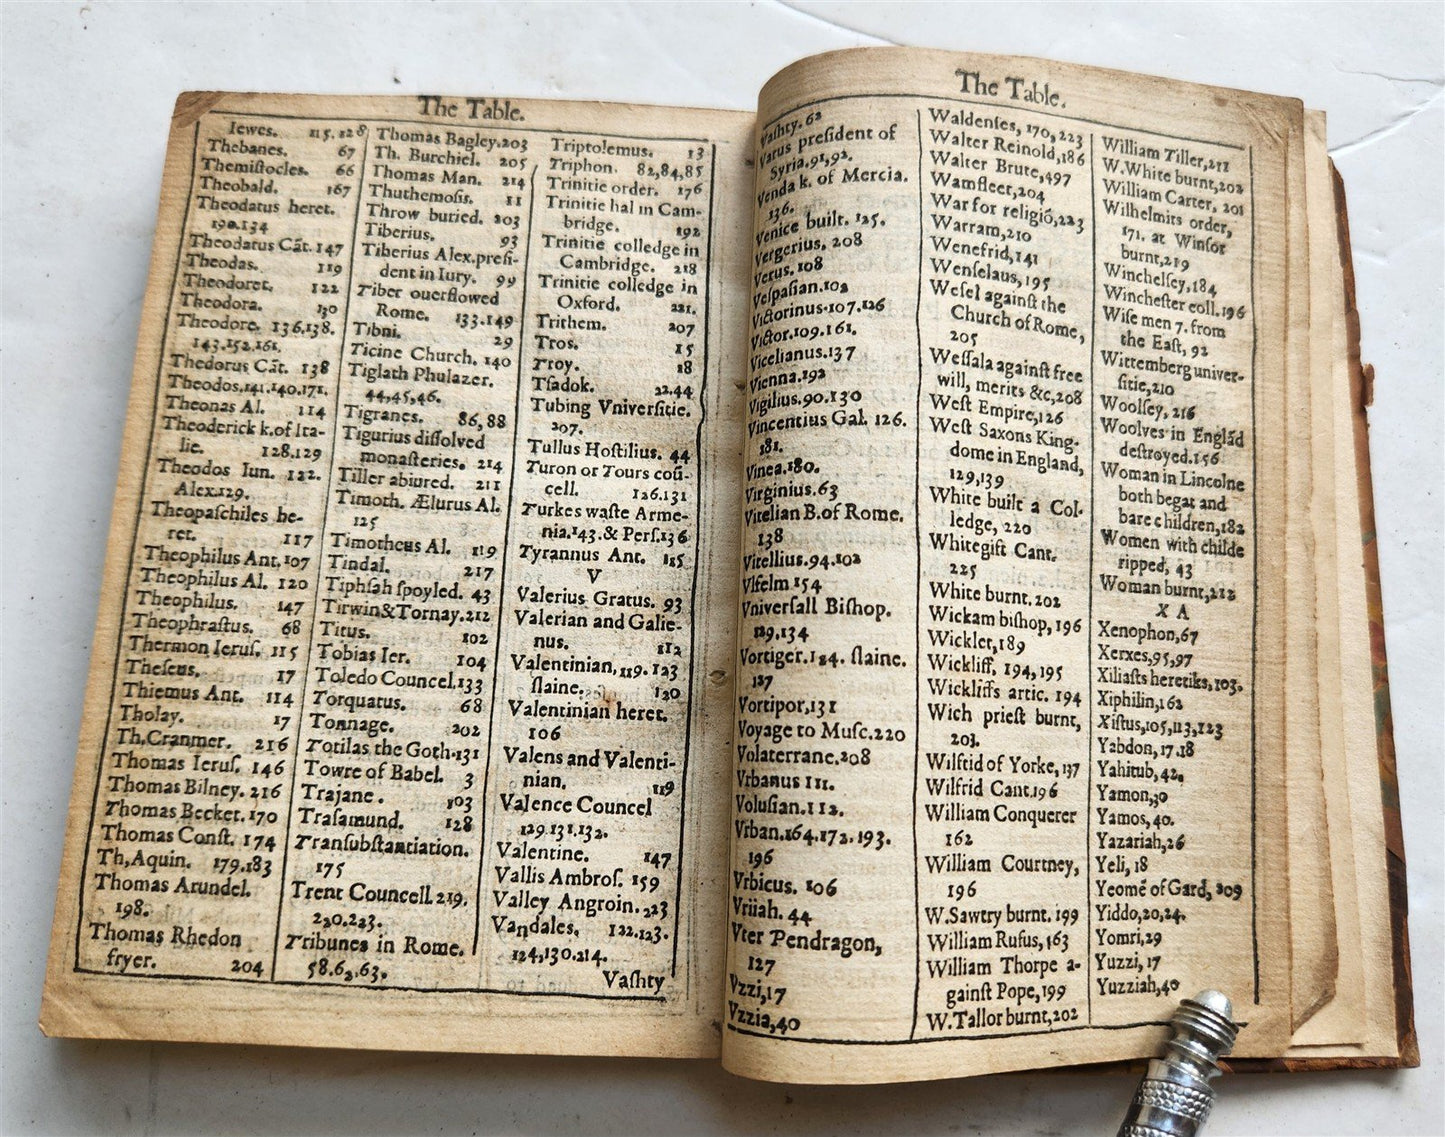 The Table.
Iewes. 115.128
Thebanes. 67
Themiſtocles. 66
Theobald. 167
Theodatus heret.
190.134
Theodatus Cāt. 147
Theodas. 119
Theodoret. 122
Theodora. 130
Theodore. 136,138.
143.152.161.
Thedorus Cāt. 138
Theodos.141.140.171.
Theonas Al. 114
Theoderick k.of Ita-
lie. 128.129
Theodos Iun. 122.
Alex.129.
Theopaſchiles he-
ret. 117
Theophilus Ant.107
Theophilus Al. 120
Theophilus. 147
Theophraſtus. 68
Thermon Ieruſ. 115
Theſeus. 17
Thiemus Ant. 114
Tholay. 17
Th,Cranmer. 216
Thomas Ieruſ. 146
Thomas Bilney. 216
Thomas Becket. 170
Thomas Conſt. 174
Th,Aquin. 179.183
Thomas Arundel.
198.
Thomas Rhedon
fryer. 204
Thomas Bagley.203
Th. Burchiel. 205
Thomas Man. 214
Thuthemoſis. 11
Throw buried. 203
Tiberius. 93
Tiberius Alex.preſi-
dent in Iury. 99
Tiber ouerflowed
Rome. 133.149
Tibni. 29
Ticine Church. 140
Tiglath Phulazer.
44,45,46.
Tigranes. 86,88
Tigurius diſſolved
monaſteries. 214
Tiller abiured. 211
Timoth. Ælurus Al.
125
Timotheus Al. 119
Tindal. 217
Tiphſah ſpoyled. 43
Tirwin&Tornay.212
Titus. 102
Tobias Ier. 104
Toledo Councel.133
Torquatus. 68
Tonnage. 202
Totilas the Goth.131
Towre of Babel. 3
Trajane. 103
Traſamund. 128
Tranſubſtantiation.
175
Trent Councell.219.
220.223.
Tribunes in Rome.
58.62,63.
Triptolemus. 13
Triphon. 82,84,85
Trinitie order. 176
Trinitie hal in Cam-
bridge. 192
Trinitie colledge in
Cambridge. 218
Trinitie colledge in
Oxford. 221.
Trithem. 207
Tros. 15
Troy. 18
Tſadok. 22.44
Tubing Vniverſitie.
207.
Tullus Hoſtilius. 44
Turon or Tours coū-
cell. 126.131
Turkes waſte Arme-
nia.143.& Perſ.136
Tyrannus Ant. 115
V
Valerius Gratus. 93
Valerian and Galie-
nus. 112
Valentinian,119.123
ſlaine. 120
Valentinian heret.
106
Valens and Valenti-
nian. 119
Valence Councel
129.131.132.
Valentine. 147
Vallis Ambroſ. 159
Valley Angroin.223
Vandales. 122.123.
124,130.214.
Vaſhty
The Table.
Vaſhty. 62
Varus preſident of
Syria.91,92.
Venda k. of Mercia.
136.
Venice built. 125.
Vergerius. 208
Verus. 108
Veſpaſian.102
Victorinus.107.126
Victor.109.161.
Vicelianus.137
Vienna.192
Vigilius.90.130
Vincentius Gal. 126.
181.
Vinea.180.
Virginius.63
Vitelian B.of Rome.
138
Vitellius.94.102
Vlfelm 154
Vniverſall Biſhop.
129.134
Vortiger.124. ſlaine.
127
Vortipor,131
Voyage to Muſc.220
Volaterrane.208
Vrbanus 111.
Voluſian.112.
Vrban.164.172.193.
196
Vrbicus. 106
Vriiah. 44
Vter Pendragon,
127
Vzzi,17
Vzzia,40
Waldenſes, 170,223
Walter Reinold,186
Walter Brute,497
Wamfleer,204
War for religiō,223
Warram,210
Wenefrid,141
Wenſelaus,195
Weſel againſt the
Church of Rome,
205
Weſſala againſt free
will, merits &c,208
Weſt Empire,126
Weſt Saxons King-
dome in England,
129,139
White built a Col-
ledge, 220
Whitegift Cant.
225
White burnt. 202
Wickam biſhop, 196
Wickler,189
Wickliff. 194,195
Wickliffs artic. 194
Wich prieſt burnt,
203.
Wilftid of Yorke,137
Wilfrid Cant.196
William Conquerer
162
William Courtney,
196
W.Sawtry burnt. 199
William Rufus,163
William Thorpe a-
gainſt Pope,199
W.Tallor burnt,202
William Tiller,211
W.White burnt,202
William Carter, 201
Wilhelmits order,
171. at Winſor
burnt,219
Wincheſley,184
Wincheſter coll.196
Wiſe men 7. from
the Eaſt, 92
Wittemberg univer-
ſitie,210
Woolſey, 216
Woolves in Englād
deſtroyed.156
Woman in Lincolne
both begat and
bare children,182
Women with childe
ripped, 43
Woman burnt,212
X A
Xenophon,67
Xerxes,95,97
Xiliaſts heretiks,103.
Xiphilin,162
Xiſtus,105,113,123
Yabdon, 17.18
Yahitub,42.
Yamon,30
Yamos,40.
Yazariah,26
Yeli, 18
Yeomē of Gard, 209
Yiddo,20,24.
Yomri,29
Yuzzi, 17
Yuzziah,40